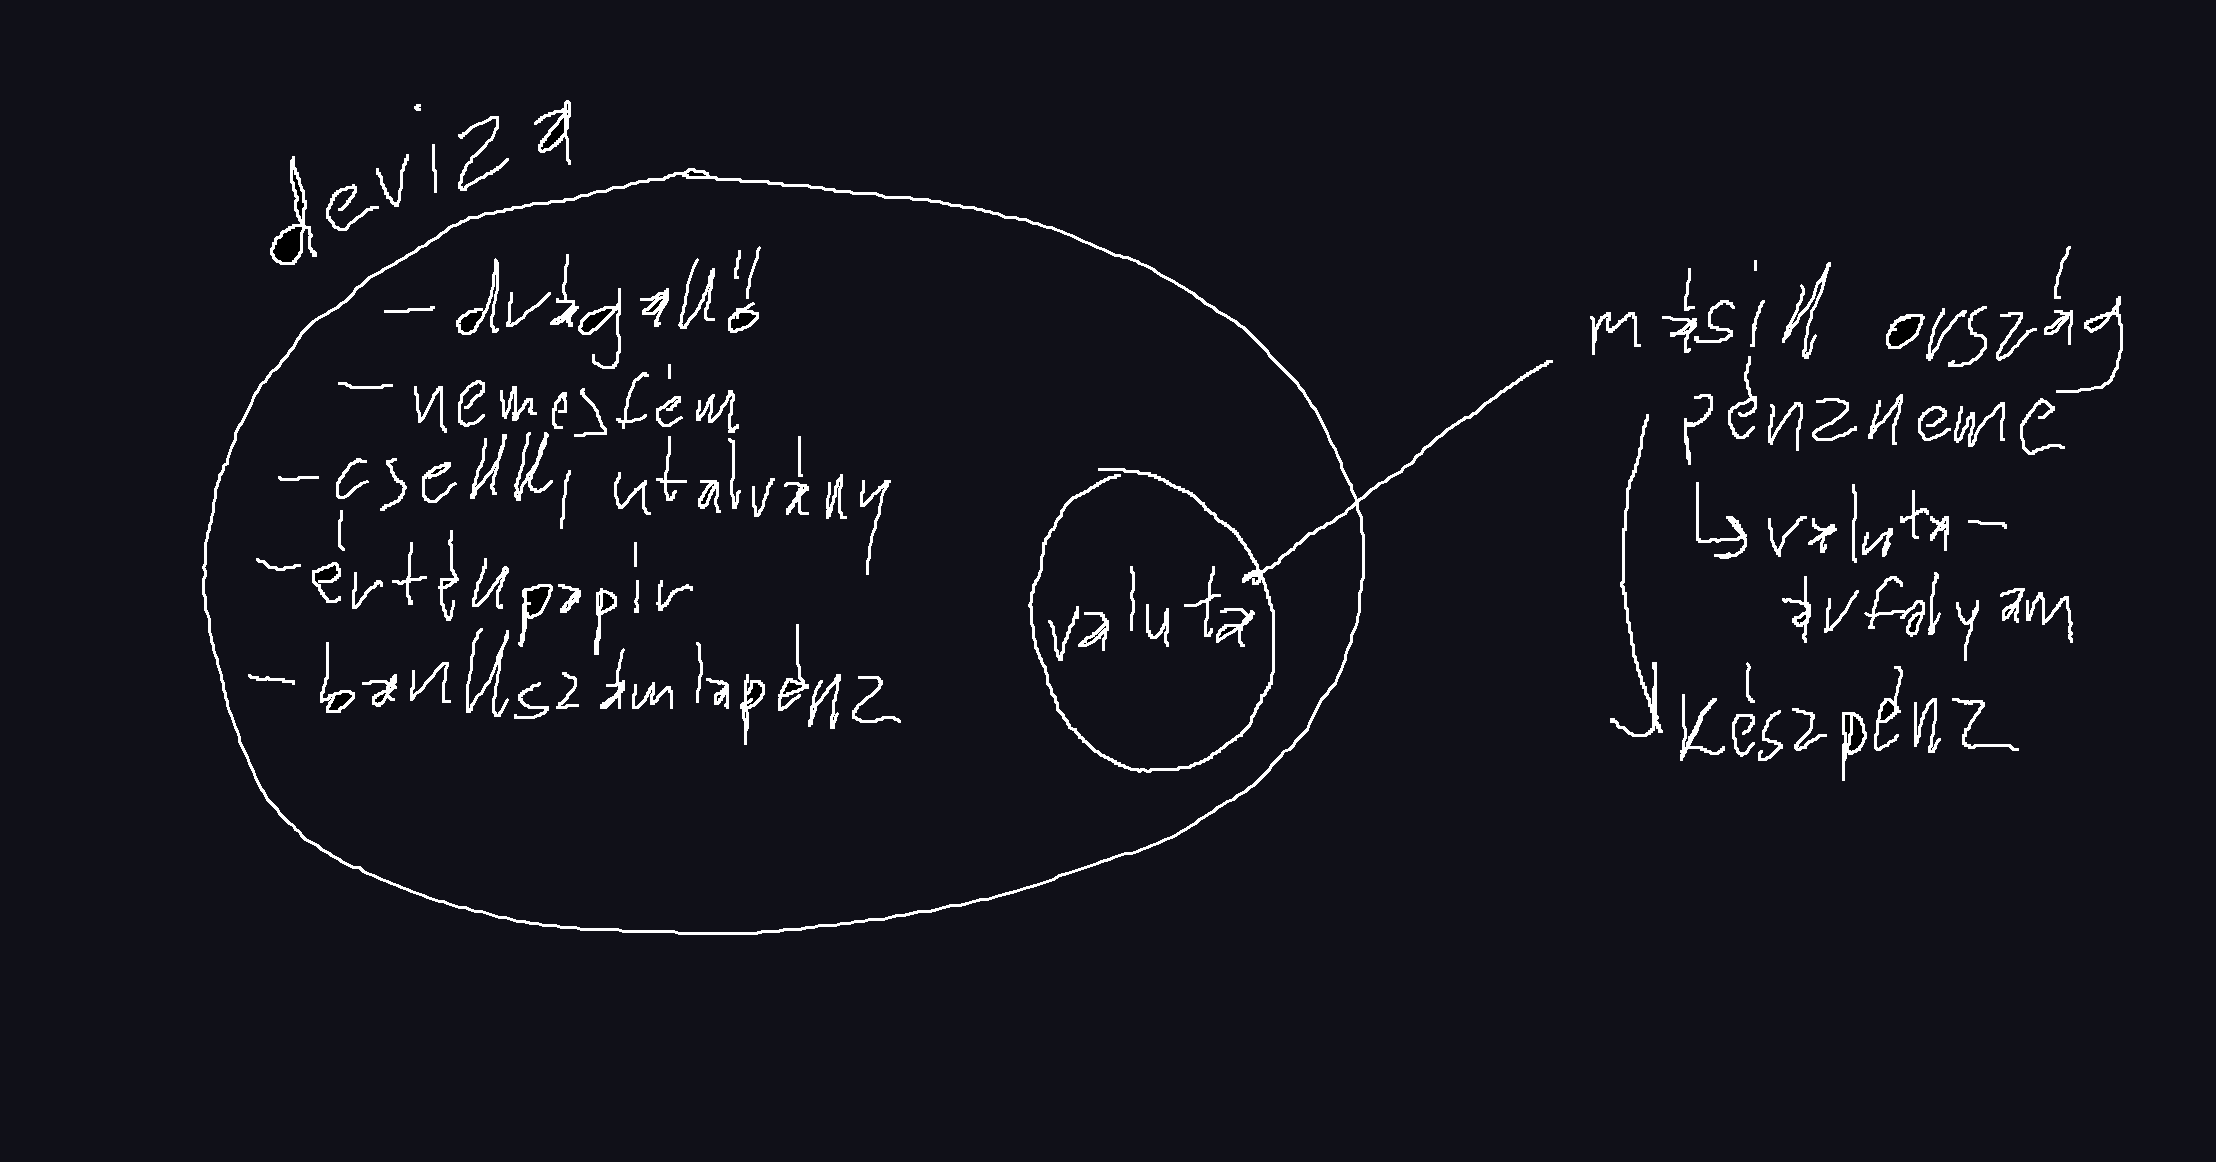 deviza
- drágakő
- nemesfém
- csekk, utalvány
- értékpapír
- bankszámlapénz
valuta
másik ország
pénzneme
↳ valuta-
árfolyam
készpénz